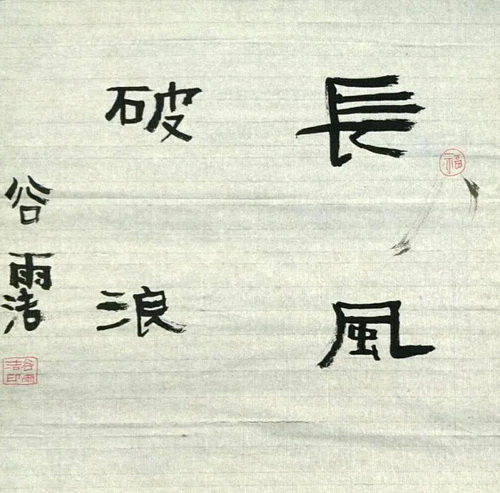 福
長風
破浪
谷雨洁
谷雨
洁印